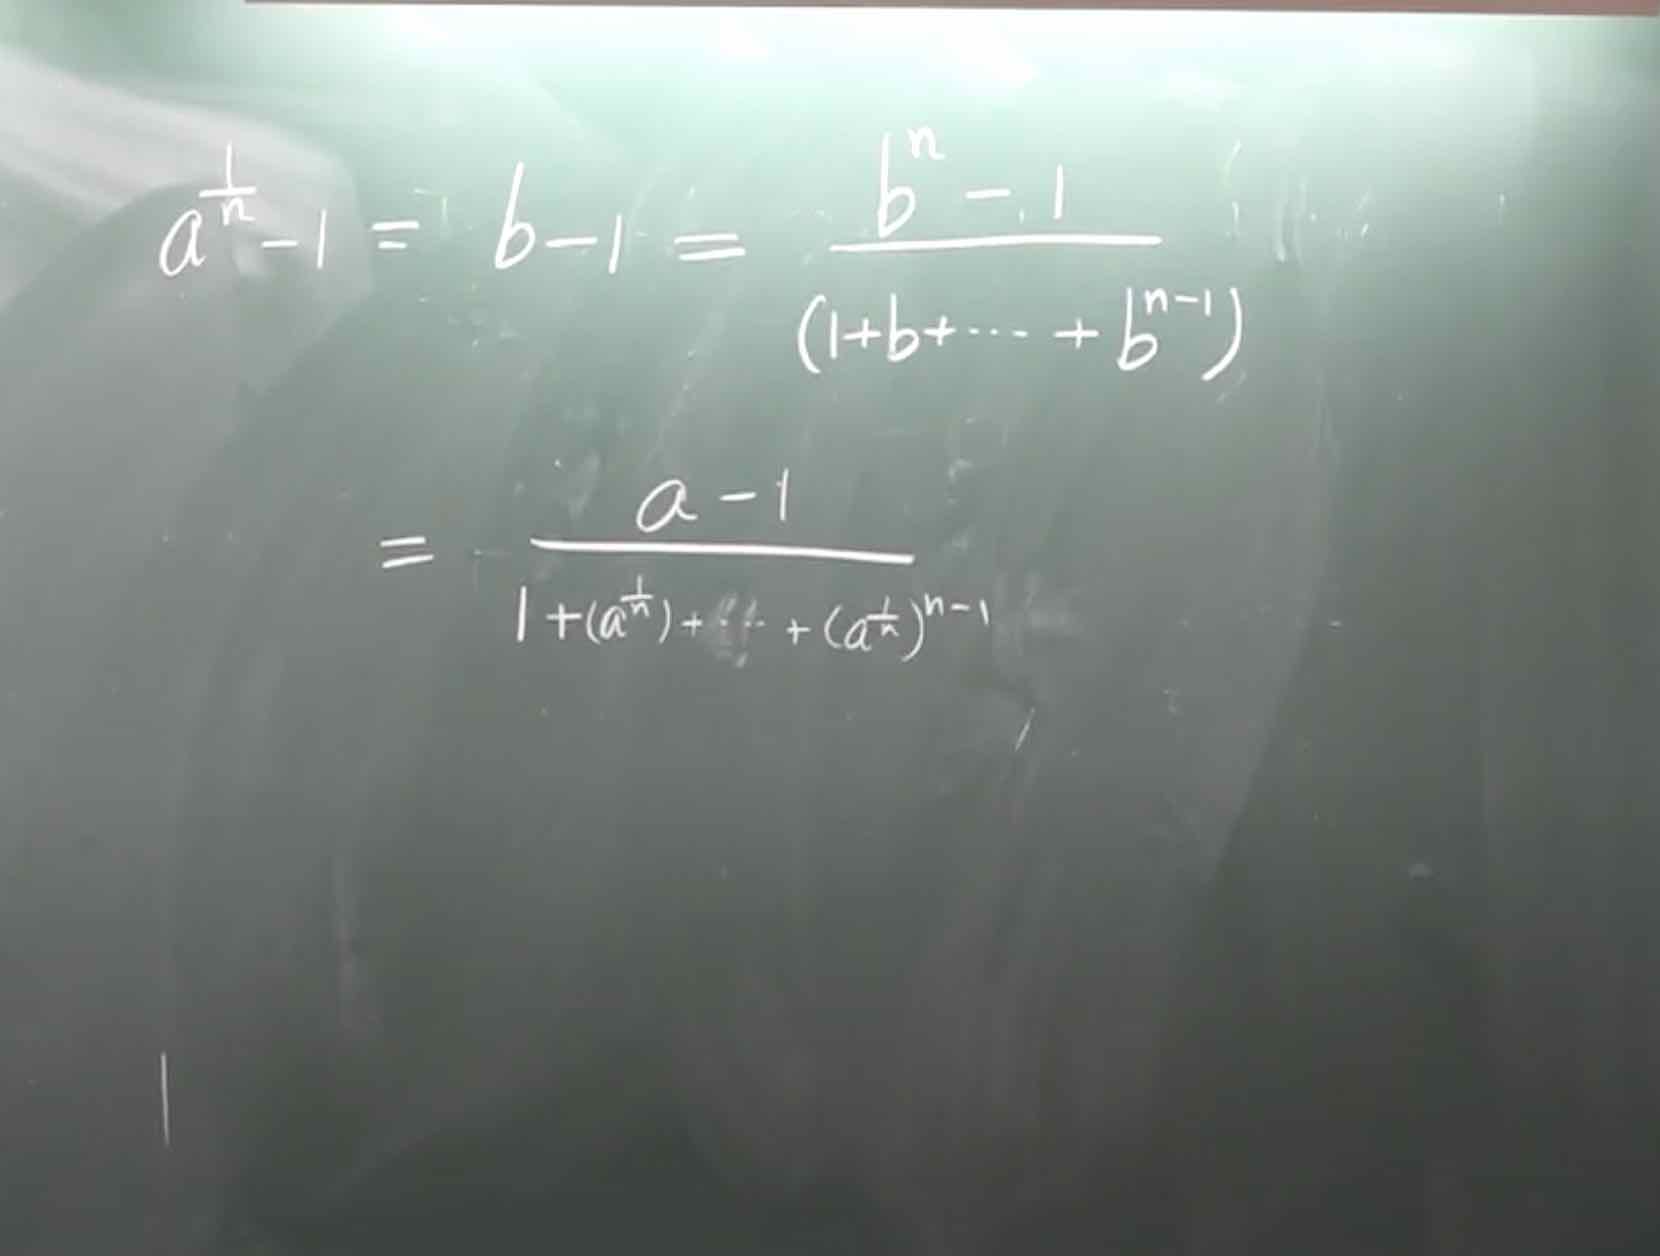 a^{\frac{1}{n}} - 1 = b - 1 = \frac{b^n - 1}{(1 + b + \cdots + b^{n-1})}
= \frac{a - 1}{1 + (a^{\frac{1}{n}}) + \cdots + (a^{\frac{1}{n}})^{n-1}}